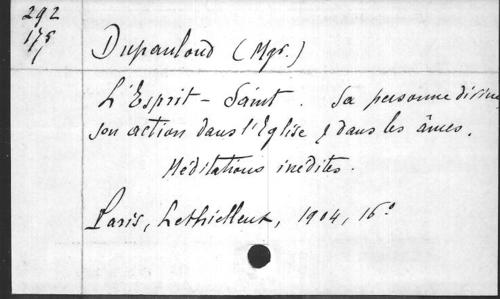 292
175
1
Dupanloud (Mgr.)
L'Esprit-Saint. Sa personne divine
son action dans l'Eglise & dans les âmes.
Méditations inédites.
Paris, Lethielleux, 1904, 16°